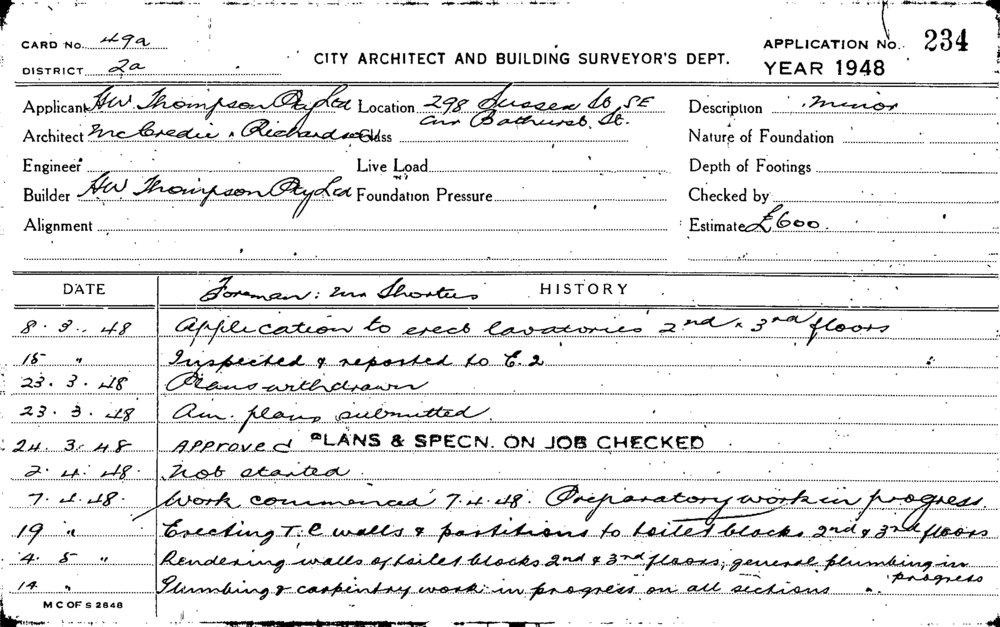 CARD No. 49a
DISTRICT 2a
CITY ARCHITECT AND BUILDING SURVEYOR'S DEPT.
APPLICATION No. 234
YEAR 1948
Applicant HW Thompson Pty Ltd Location 298 Sussex St, SE Description Minor
cnr Bathurst St.
Architect McCredie & Richardson Class Nature of Foundation
Engineer Live Load Depth of Footings
Builder HW Thompson Pty Ltd Foundation Pressure Checked by
Alignment Estimate £600.
DATE Foreman: Mr HISTORY
8.3.48 Application to erect lavatories 2nd & 3rd floors
15 " Inspected & reported to E.2
23.3.48 Plans withdrawn
23.3.48 Am. plans submitted.
24.3.48 Approved PLANS & SPECN. ON JOB CHECKED
2.4.48. Not started.
7.4.48. Work commenced 7.4.48. Preparatory work in progress.
19 " Erecting T.C walls & partitions to toilet blocks 2nd & 3rd floors
4.5 " Rendering walls of toilet blocks 2nd & 3rd floors, general plumbing in progress
14 " Plumbing & carpentry work in progress on all sections ".
M C OF S 2848